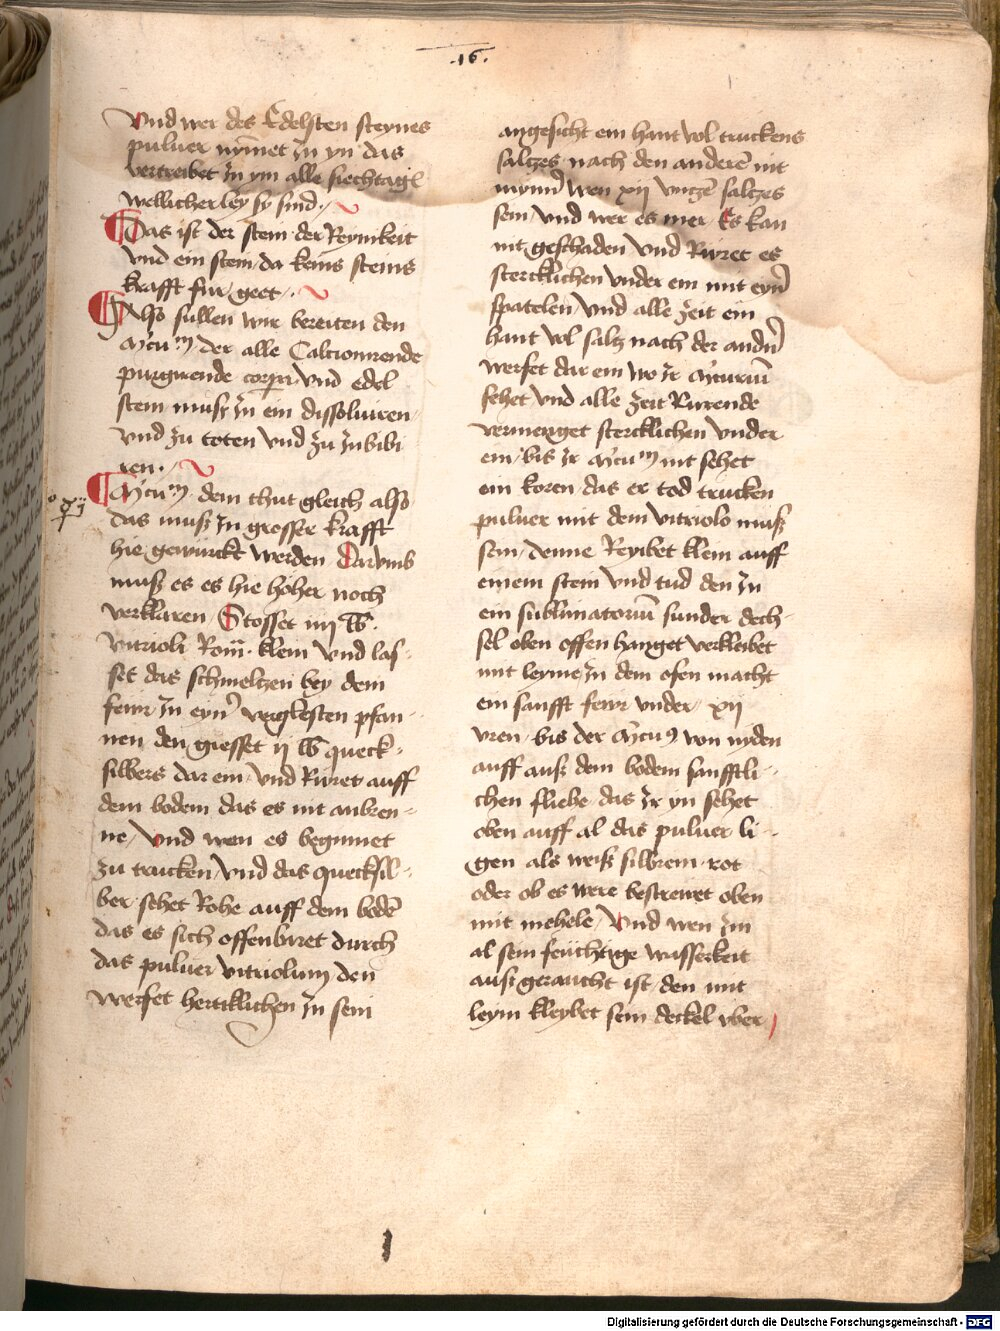 .16.
Vnd wer des Edelsten steynes
puluer nymet Jn yn das
vertreibet Jn ym alle siechtagē
wellicherley sy sind.
Das ist der stein der Reynikeit
Vnd ein stein da keins steins
krafft fur geet.
Also sullen wir bereiten den
der alle Calcionirende
purgirende corper Vnd edel
stein muß Jn ein dissoluiren
Vnd zu toten Vnd zu Jnbibi
ren.
dem thut gleich also
das muß Jn grosser krafft
hie gewurckt werden Darvmb
muß es es hie hoher noch
verklaren Stosset iiij ℔.
vitrioli Rom̄. klein Vnd las-
set das schmeltzen bey dem
fewr Jn eyn' verglesten pfan-
nen den giesset ij ℔ queck-
silbers dar ein Vnd Ruret auff
dem bodem das es nit anbren-
ne, Vnd wen es begynnet
zu trucken Vnd das quecksil-
ber sehet Rohe auff dem bodē
das es sich offenbaret durch
das puluer vitriolum den
werfet hertiklichen Jn sein
angesicht ein hant vol truckens
saltzes nach den anderē nit
mynn' wen xij vntzē saltzes
sein Vnd wer es mer Es kan
nit geschaden Vnd Ruret es
stercklichen vnder ein mit eyn'
spatelen Vnd alle zeit ein
hant vol saltz nach der andn'
werfet dar ein wo Jr
sehet Vnd alle zeit Rurende
vermenget stercklichen vnder
ein, bis Jr nit sehet
ein koren das er tod trucken
puluer mit dem vitriolo muß
sein, denne Reybet klein auff
einem stein Vnd tud den Jn
ein sublimatoriū sunder deck-
sel oben offen hanget verkleibet
mit leyme Jn dem ofen macht
ein sanfft fewr vnder xij
vren bis der von nyden
auff auß dem bodem sanfftli-
chen fliehe das Jr yn sehet
oben auff al das puluer li-
gen als weiß silbrein rot
oder ob es were bestrewet oben
mit mehele, Vnd wen Jm
al sein feuchtige wasserkeit
auß geraucht ist den mit
leym kleybet sein deckel vber
Digitalisierung gefördert durch die Deutsche Forschungsgemeinschaft - DFG